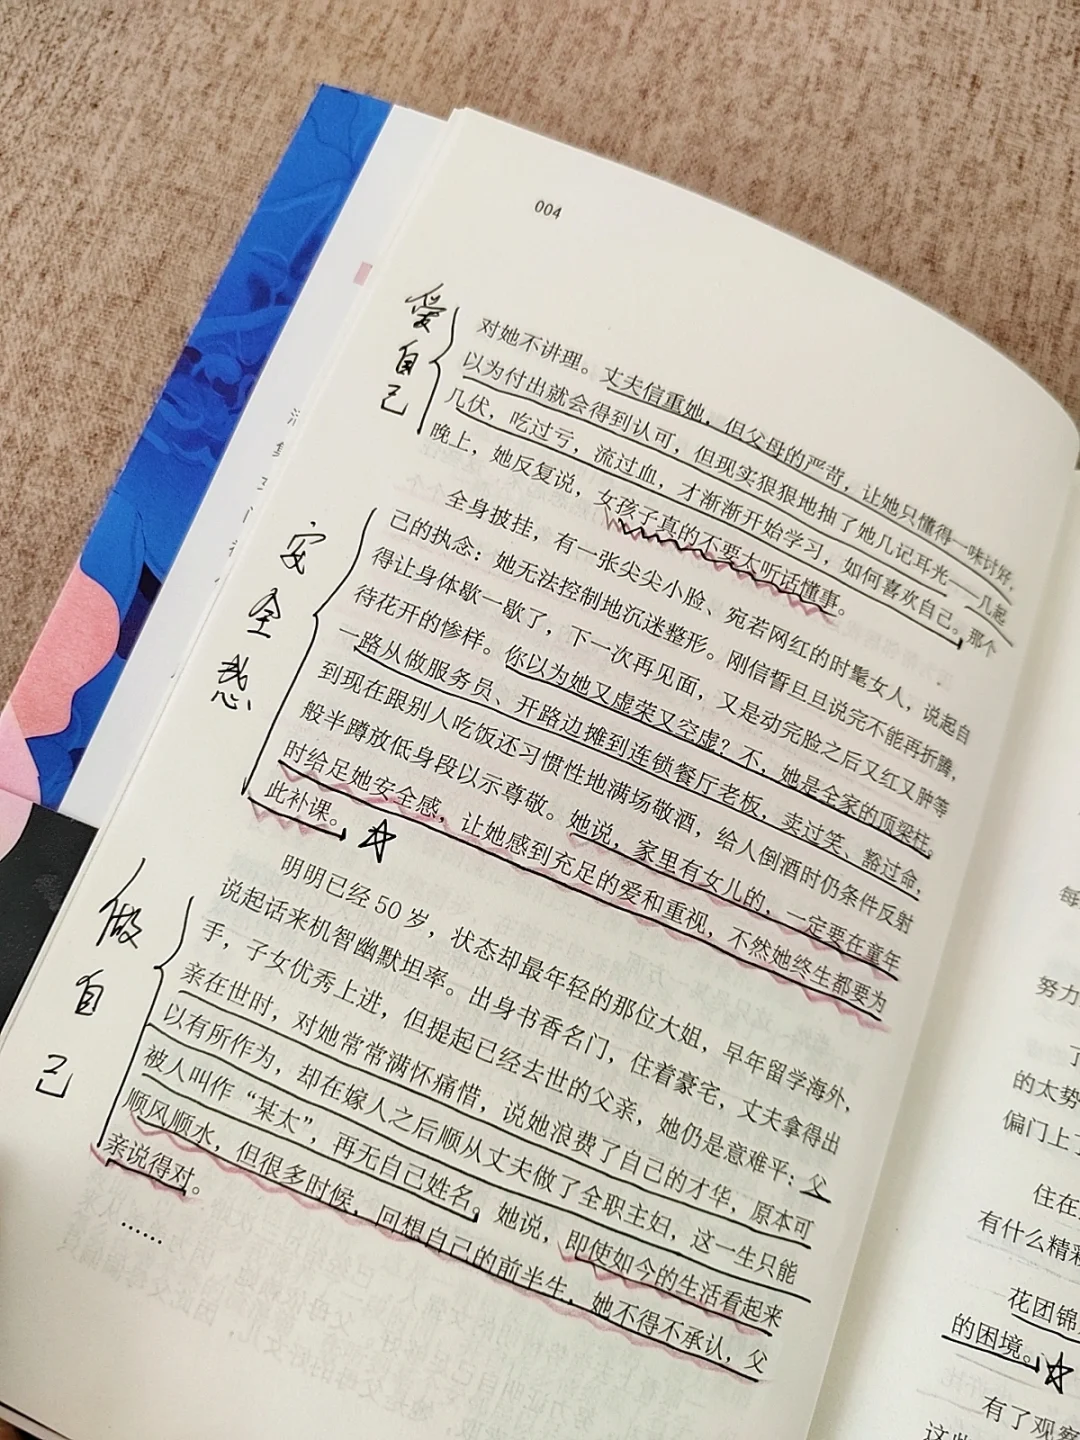 004
爱自己
对她不讲理。丈夫信重她，但父母的严苛，让她只懂得一味讨好，
以为付出就会得到认可，但现实狠狠地抽了她几记耳光——几起
几伏，吃过亏，流过血，才渐渐开始学习，如何喜欢自己。那个
晚上，她反复说，女孩子真的不要太听话懂事。
安全感
全身披挂，有一张尖尖小脸、宛若网红的时髦女人，说起自
己的执念：她无法控制地沉迷整形。刚信誓旦旦说完不能再折腾，
得让身体歇一歇了，下一次再见面，又是动完脸之后又红又肿等
待花开的惨样。你以为她又虚荣又空虚？不，她是全家的顶梁柱，
一路从做服务员、开路边摊到连锁餐厅老板，卖过笑、豁过命，
到现在跟别人吃饭还习惯性地满场敬酒，给人倒酒时仍条件反射
般半蹲放低身段以示尊敬。她说，家里有女儿的，一定要在童年
时给足她安全感，让她感到充足的爱和重视，不然她终生都要为
此补课。
做自己
明明已经50岁，状态却最年轻的那位大姐，早年留学海外，
说起话来机智幽默坦率。出身书香名门，住着豪宅，丈夫拿得出
手，子女优秀上进，但提起已经去世的父亲，她仍是意难平：父
亲在世时，对她常常满怀痛惜，说她浪费了自己的才华，原本可
以有所作为，却在嫁人之后顺从丈夫做了全职主妇，这一生只能
被人叫作“某太”，再无自己姓名。她说，即使如今的生活看起来
顺风顺水，但很多时候，回想自己的前半生，她不得不承认，父
亲说得对。
……
每
努力
的太势
偏门上
住在
有什么精彩
花团锦
的困境。
有了观察